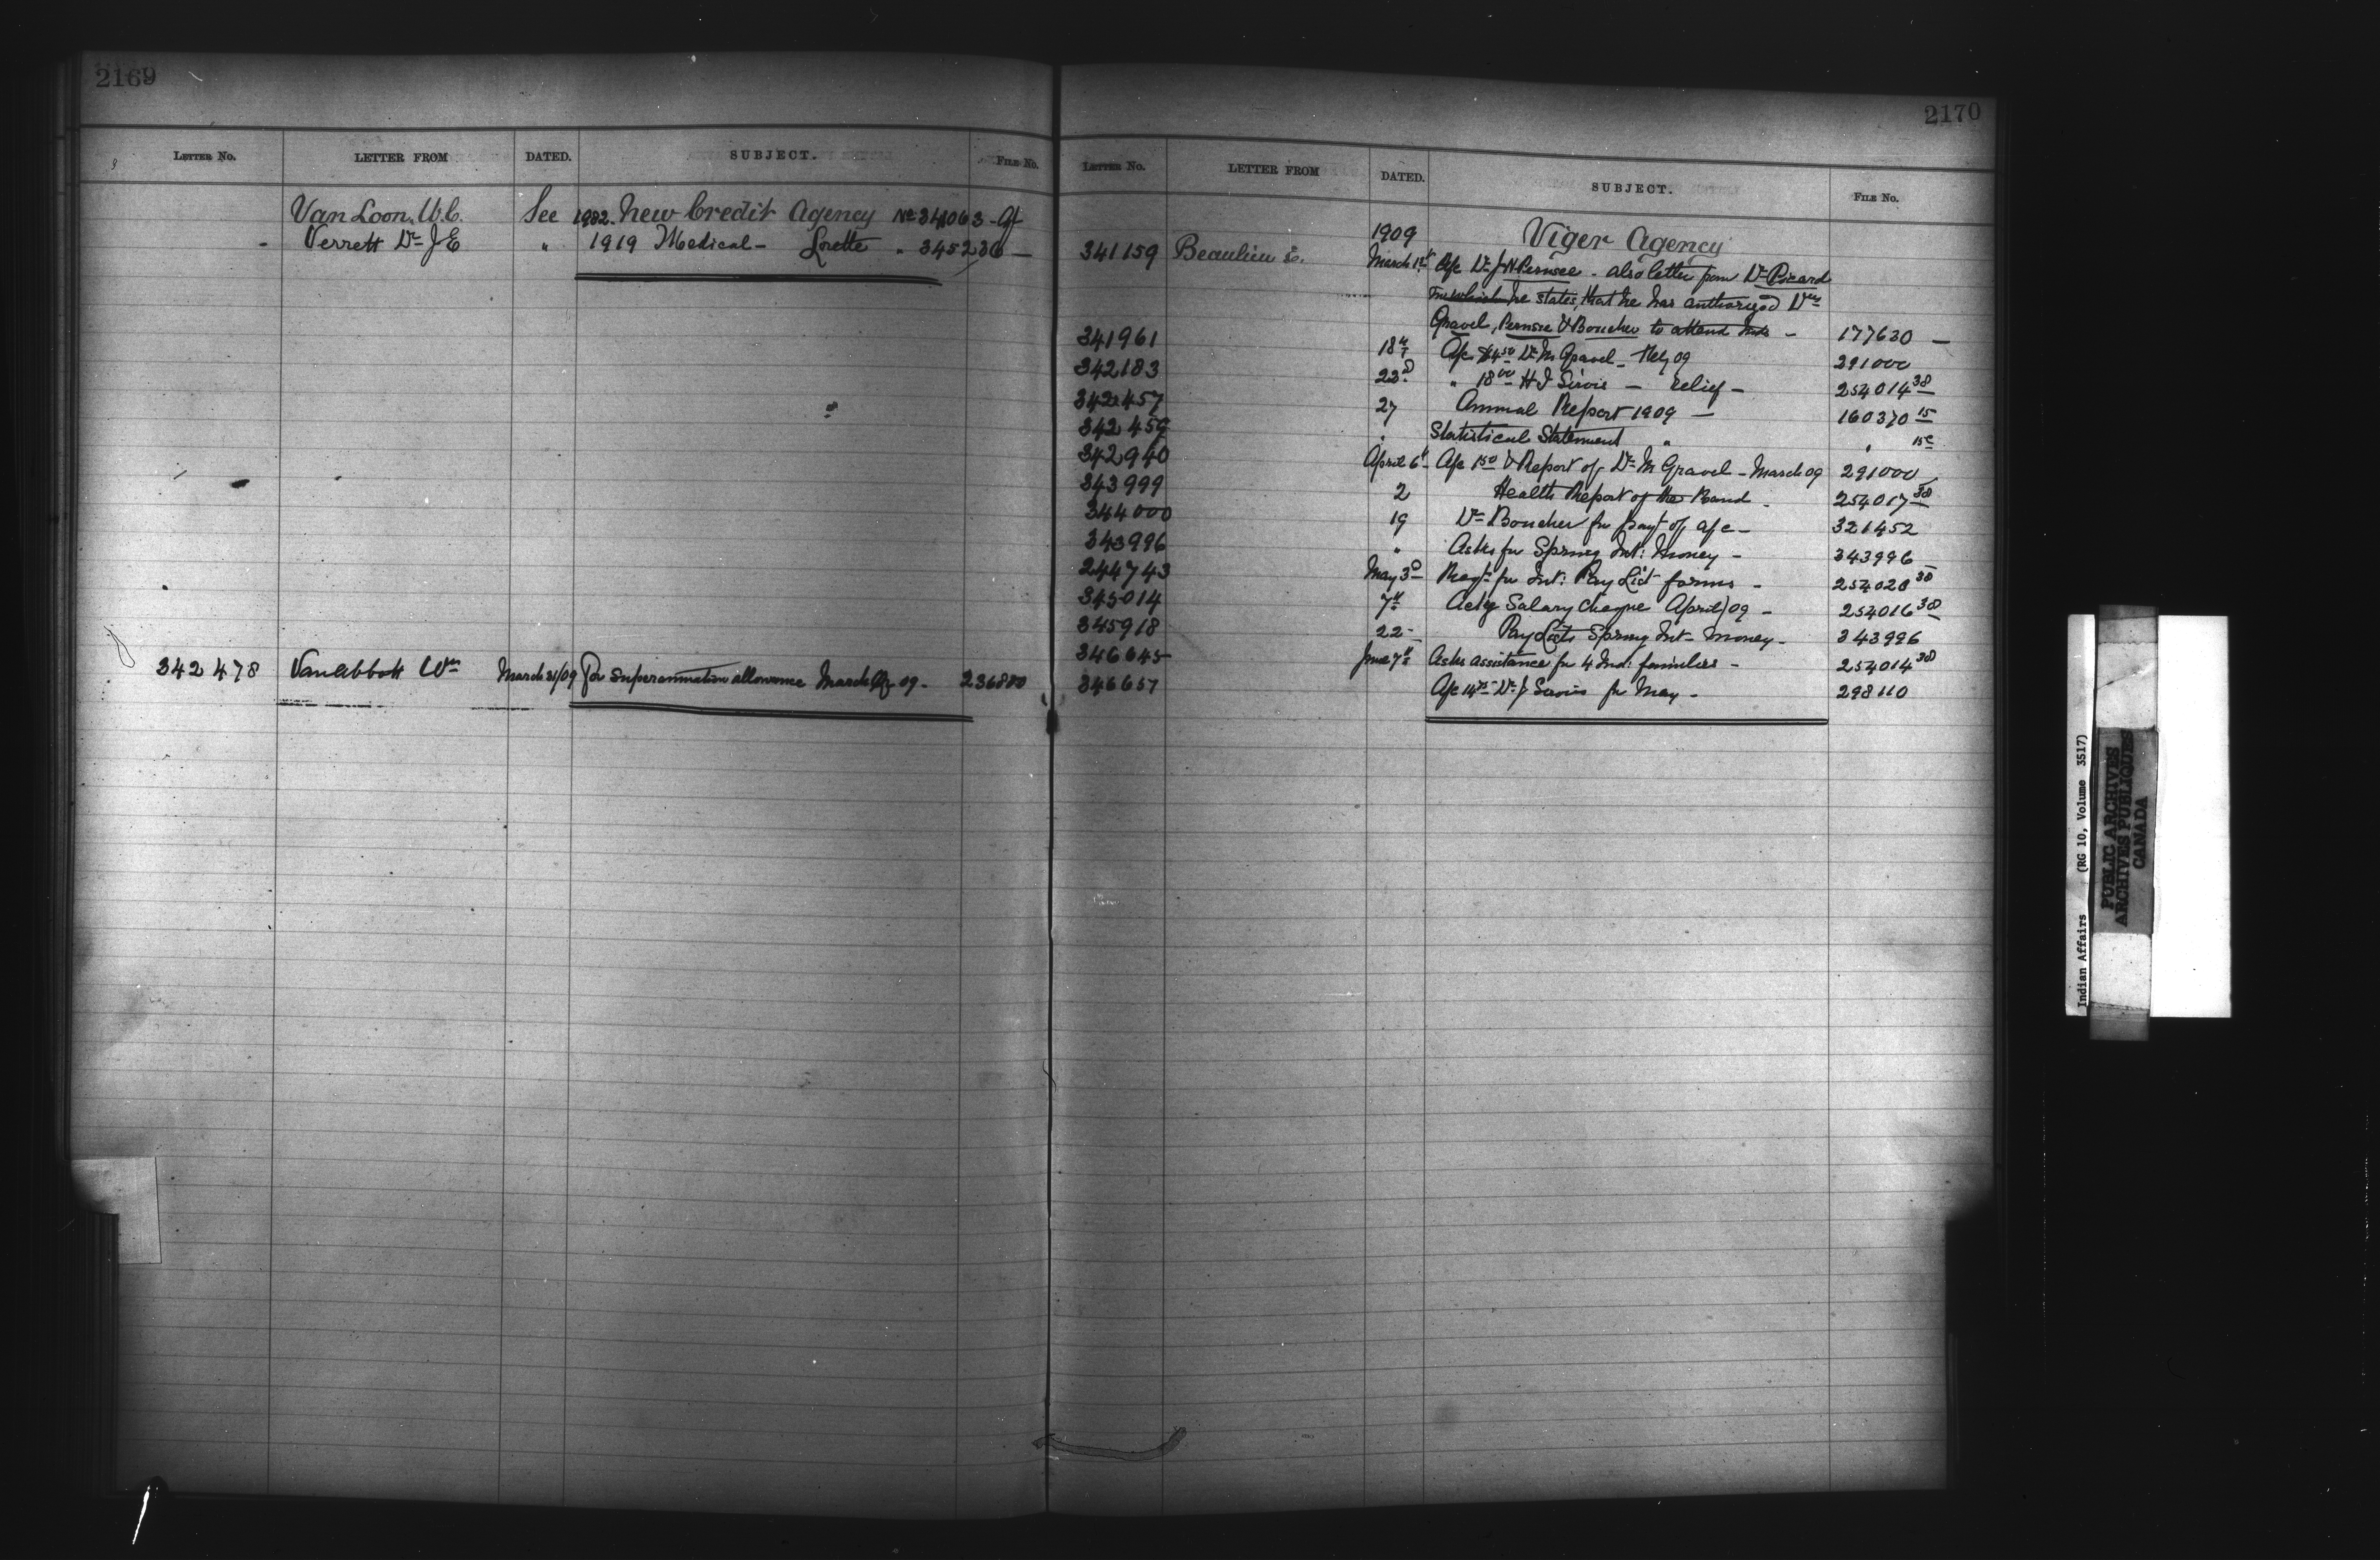 2169
LETTER No. LETTER FROM DATED. SUBJECT. FILE No.
Van Loon W.C. See 1982. New Credit Agency No 341063 -
- Verrett Dr J E " 1919 Medical - Lorette " 345236 -
342478 Van Abbott Wm March 31/09 For Superannuation allowance March Qr 09. 236880
2170
LETTER No. LETTER FROM DATED. SUBJECT. FILE No.
1909 Viger Agency
341159 Beaulieu E. March 1st A/c Dr J N Pernsee - also letter from Dr Picard
In which he states, that he has authorized Drs
Gravel, Pernsee & Boucher to attend Inds - 177630 -
341961 18th A/c $4.50 Dr M Gravel - Feby 09 291000
342183 23d " 18.00 H J Sirois - relief - 254014 38
342457 27 Annual Report 1909 - 160370 15
342459 " Statistical Statement " " 15c
342940 April 6th A/c 1.50 & Report of Dr M Gravel - March 09 291000
343999 2 Health Report of the Band - 254017 38
344000 19 Dr Boucher for payt of a/c - 321452
343996 " Asks for Spring Int: Money - 343996
244743 May 3d Reqt for Int: Pay List forms - 254020 38
345014 7th Ackg Salary Cheque April/09 - 254016 38
345918 22 Pay Lists Spring Int- Money - 343996
346645 June 7th Asks assistance for 4 Ind: families - 254014 38
346657 A/c 14.75 Dr J Sirois for May - 298110
Indian Affairs (RG 10, Volume 3517)
PUBLIC ARCHIVES
ARCHIVES PUBLIQUES
CANADA